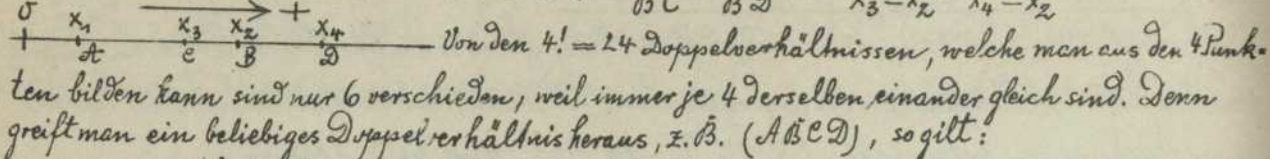 O ⟶ + BC BD x₃−x₂ x₄−x₂
x₁ x₃ x₂ x₄
A C B D Von den 4! = 24 Doppelverhältnissen, welche man aus den 4 Punk-
ten bilden kann sind nur 6 verschieden, weil immer je 4 derselben einander gleich sind. Denn
greift man ein beliebiges Doppelverhältnis heraus, z. B. (ABCD), so gilt: